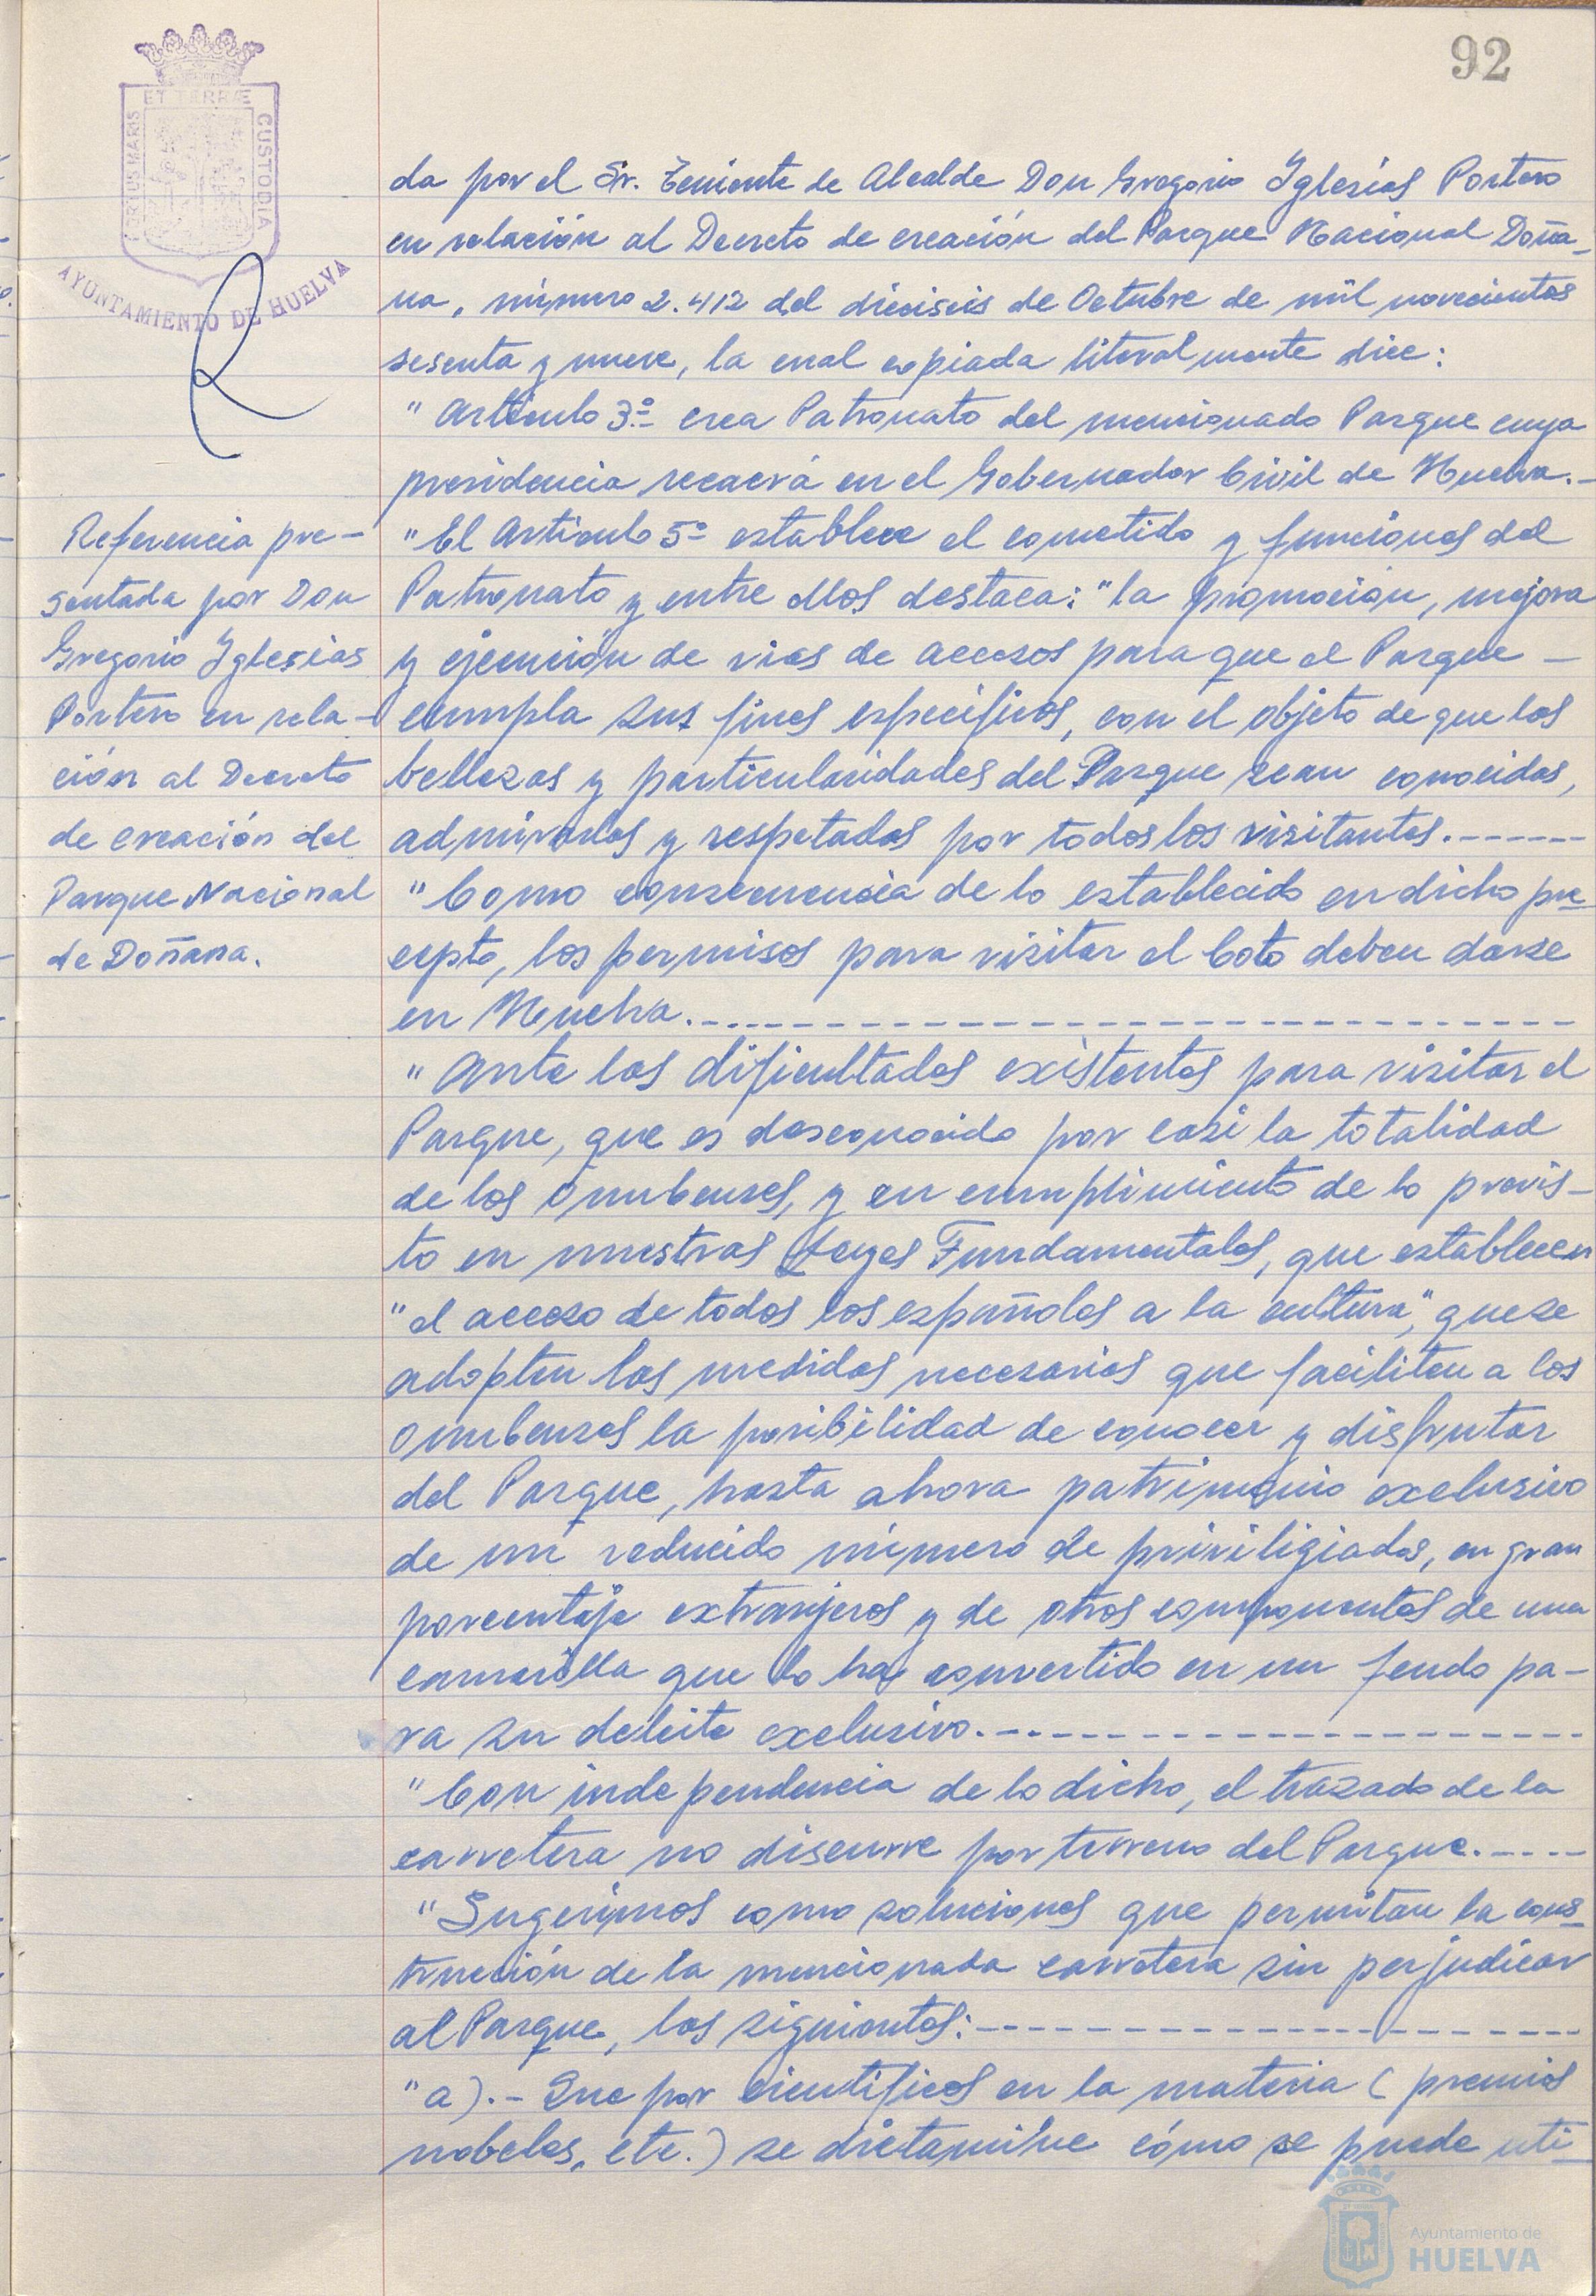 92
ET TERRÆ
PORTUS MARIS
CUSTODIA
AYUNTAMIENTO DE HUELVA
da por el Sr. Teniente de Alcalde Don Gregorio Iglesias Portero
en relación al Decreto de creación del Parque Nacional Doña-
na, número 2.412 del dieciseis de Octubre de mil novecientos
sesenta y nueve, la cual copiada literalmente dice:
"Artículo 3º.- crea Patronato del mencionado Parque cuya
presidencia recaerá en el Gobernador Civil de Huelva.-
Referencia pre-
sentada por Don
Gregorio Iglesias
Portero en rela-
ción al Decreto
de creación del
Parque Nacional
de Doñana.
"El Artículo 5º establece el cometido y funciones del
Patronato y entre ellos destaca: "la promoción, mejora
y ejecución de vias de accesos para que el Parque -
cumpla sus fines específicos, con el objeto de que las
bellezas y particularidades del Parque sean conocidas,
admiradas y respetadas por todos los visitantes.------
"Como consecuencia de lo establecido en dicho pre-
cepto, los permisos para visitar el Coto deben darse
en Huelva.------------------------------
"Ante las dificultades existentes para visitar el
Parque, que es desconocido por casi la totalidad
de los onubenses, y en cumplimiento de lo previs-
to en nuestras Leyes Fundamentales, que establecen
"el acceso de todos los españoles a la cultura", que se
adopten las medidas necesarias que faciliten a los
onubenses la posibilidad de conocer y disfrutar
del Parque, hasta ahora patrimonio exclusivo
de un reducido número de priviligiados, en gran
porcentaje extranjeros y de otros componentes de una
camarilla que lo ha convertido en un feudo pa-
ra su deleite exclusivo.--------------------
"Con independencia de lo dicho, el trazado de la
carretera no discurre por terreno del Parque.----
"Sugerimos como soluciones que permitan la cons-
trucción de la mencionada carretera sin perjudicar
al Parque, las siguientes:--------------------
"a).- Que por cientificos en la materia (premios
nobeles, etc.) se dictamine cómo se puede uti-
Ayuntamiento de
HUELVA